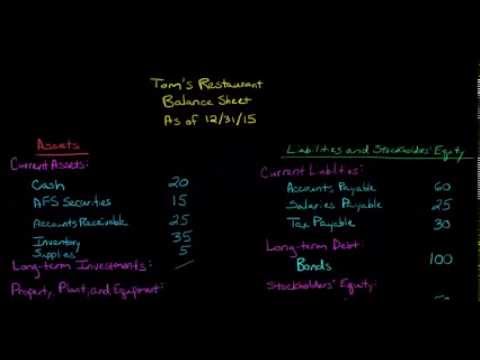 Tom's Restaurant
Balance Sheet
As of 12/31/15
Assets
Current Assets:
Cash 20
AFS Securities 15
Accounts Receivable 25
Inventory 35
Supplies 5
Long-term Investments:
Property, Plant, and Equipment:
Liabilities and Stockholders' Equity
Current Liabilities:
Accounts Payable 60
Salaries Payable 25
Tax Payable 30
Long-term Debt:
Bonds 100
Stockholders' Equity: